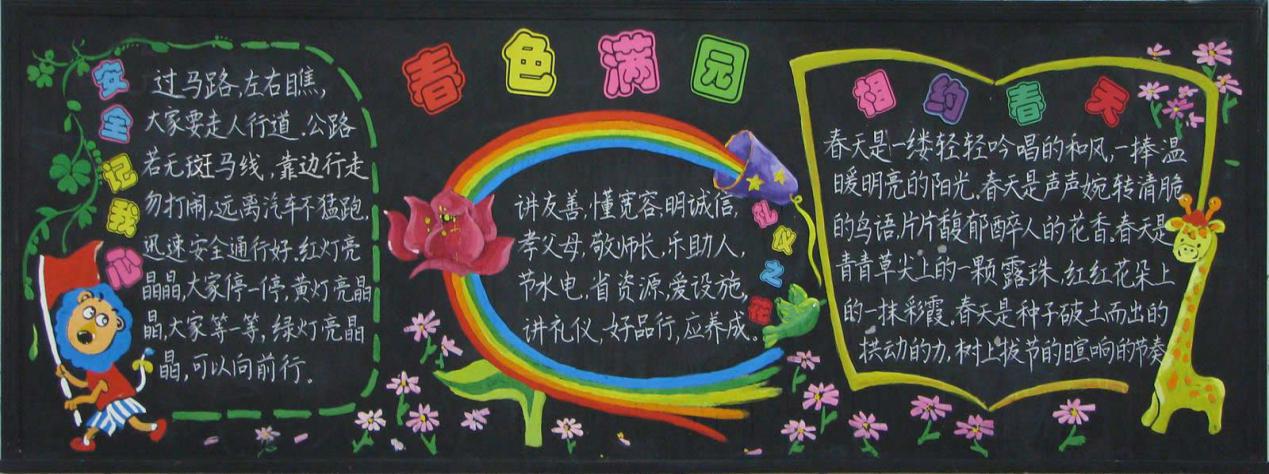 春色满园
安全记我心
过马路,左右瞧,
大家要走人行道.公路
若无斑马线,靠边行走
勿打闹,远离汽车不猛跑,
迅速安全通行好.红灯亮
晶晶,大家停一停,黄灯亮晶
晶,大家等一等,绿灯亮晶
晶,可以向前行。
礼仪之花
讲友善,懂宽容,明诚信,
孝父母,敬师长,乐助人,
节水电,省资源,爱设施,
讲礼仪,好品行,应养成。
相约春天
春天是一缕轻轻吟唱的和风,一捧温
暖明亮的阳光。春天是声声婉转清脆
的鸟语,片片馥郁醉人的花香。春天是
青青草尖上的一颗露珠,红红花朵上
的一抹彩霞。春天是种子破土而出的
拱动的力,树上拔节的喧响的节奏